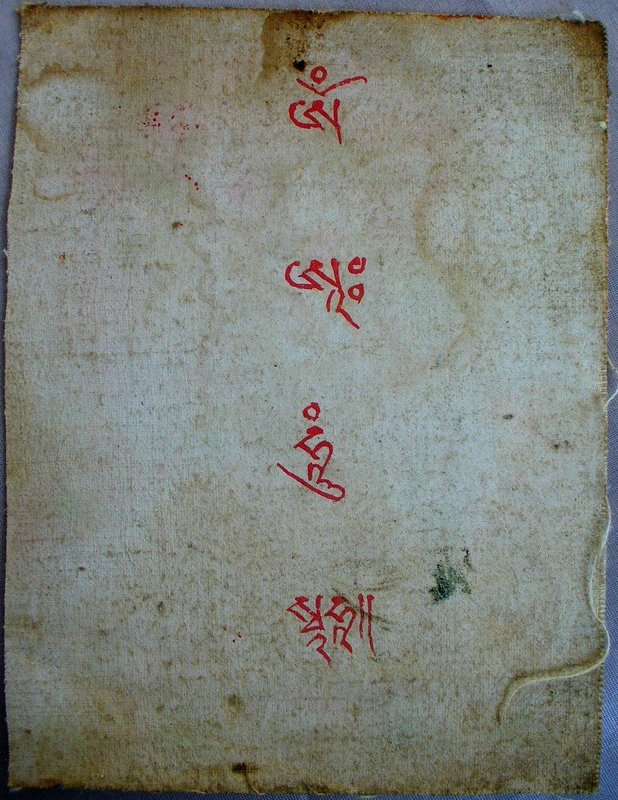 ཨོཾ
ཨཱཿ
ཧཱུྃ
སྭཱཧཱ།།